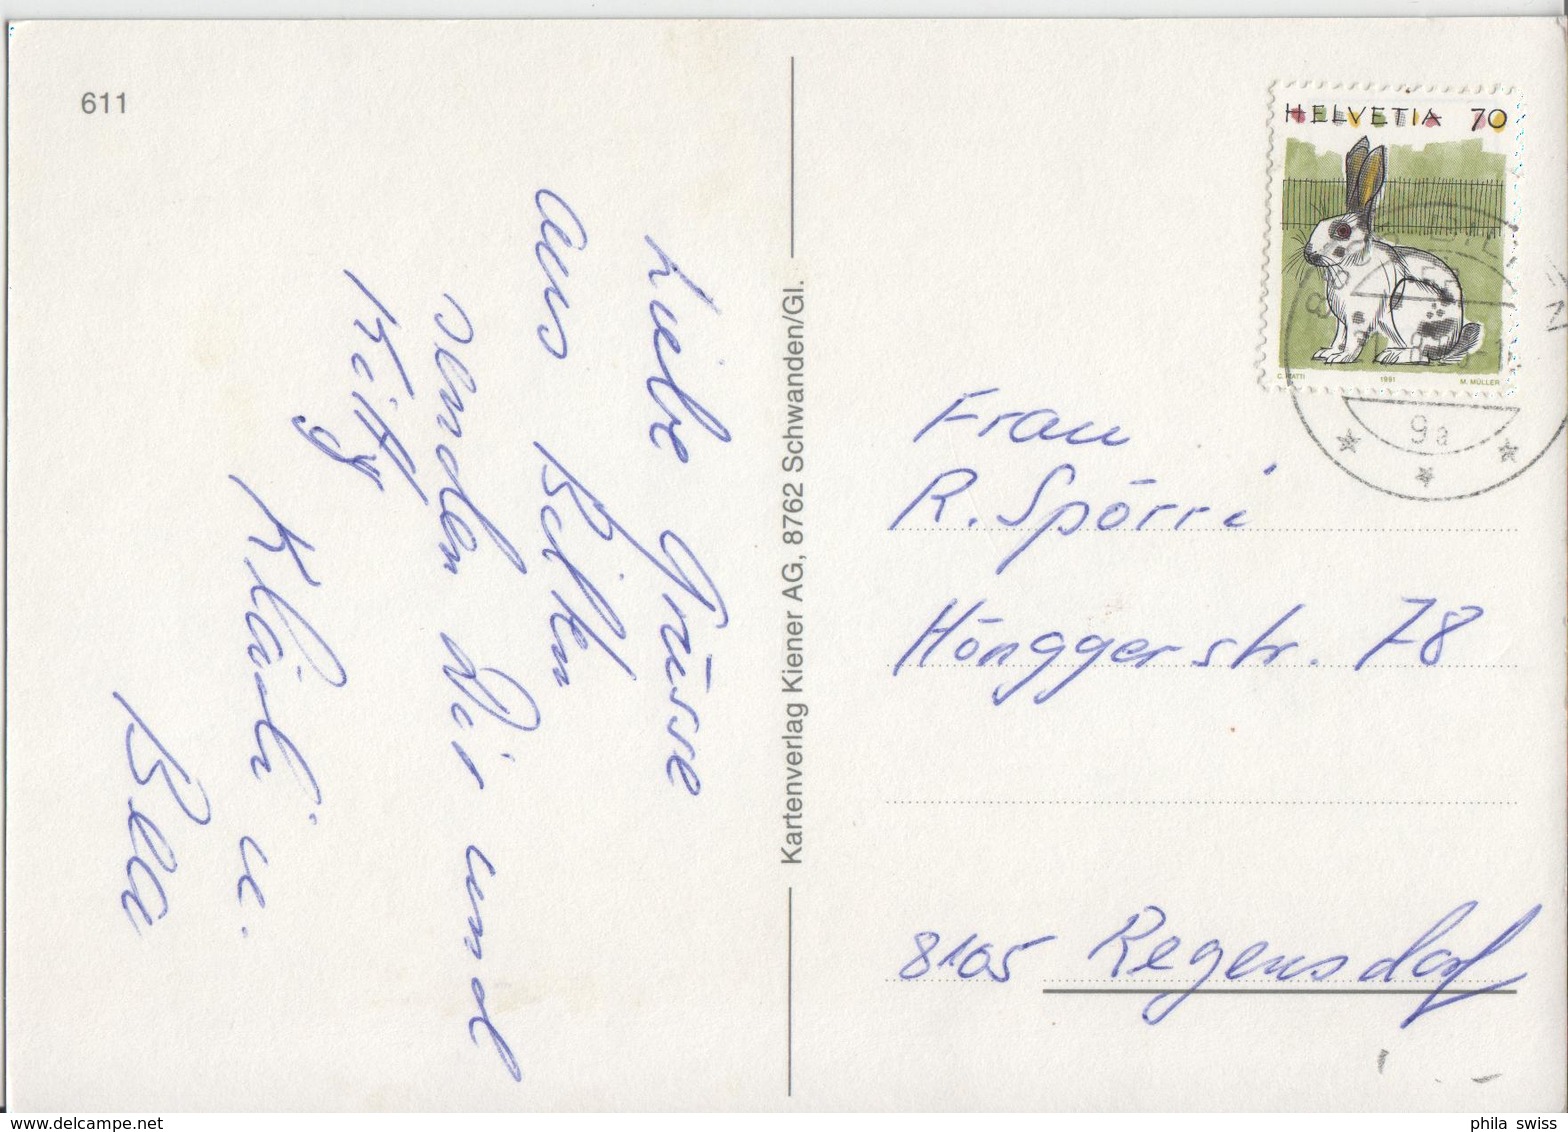 611
Liebe Grüsse
aus Bilten
senden Dir und
Kitty
Kläsli u.
Bea
Kartenverlag Kiener AG, 8762 Schwanden/Gl.
HELVETIA 70
C. PIATTI 1991 M. MÜLLER
9a
Frau
R. Spörri
Hönggerstr. 78
8105 Regensdorf
www.delcampe.net
phila swiss